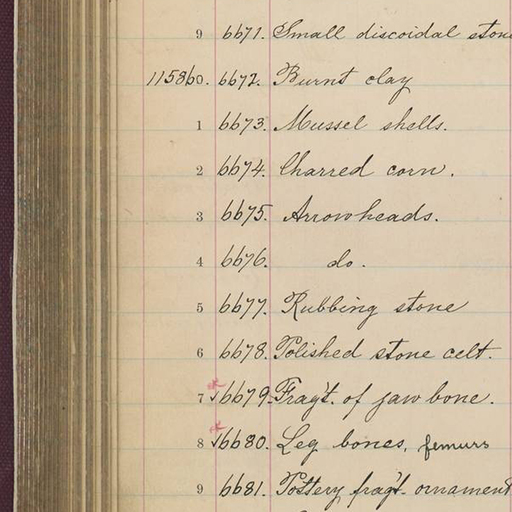 9 6671. Small discoidal stone
115860. 6672. Burnt clay
1 6673. Mussel shells.
2 6674. Charred corn.
3 6675. Arrowheads.
4 6676. do.
5 6677. Rubbing stone
6 6678. Polished stone celt.
7 √6679. Fragt. of jaw bone.
8 √6680. Leg bones, femurs
9 6681. Pottery fragt. ornament